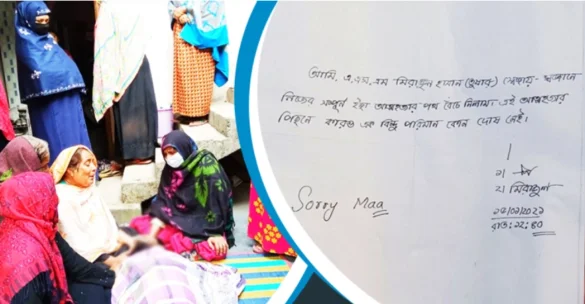 আমি, এ,এস,এম মিরাজুল হাসান (তুষার) স্বেচ্ছায়- স্বজ্ঞানে
নিজের সম্পূর্ন ইচ্ছা আত্মহত্যার পথ বেঁচে নিলাম। এই আত্মহত্যার
পিছনে কারও এক বিন্দু পরিমান কোন দোষ নেই।
১।
Sorry Maa
২। মিরাজুল
রাত: ১২:৪০